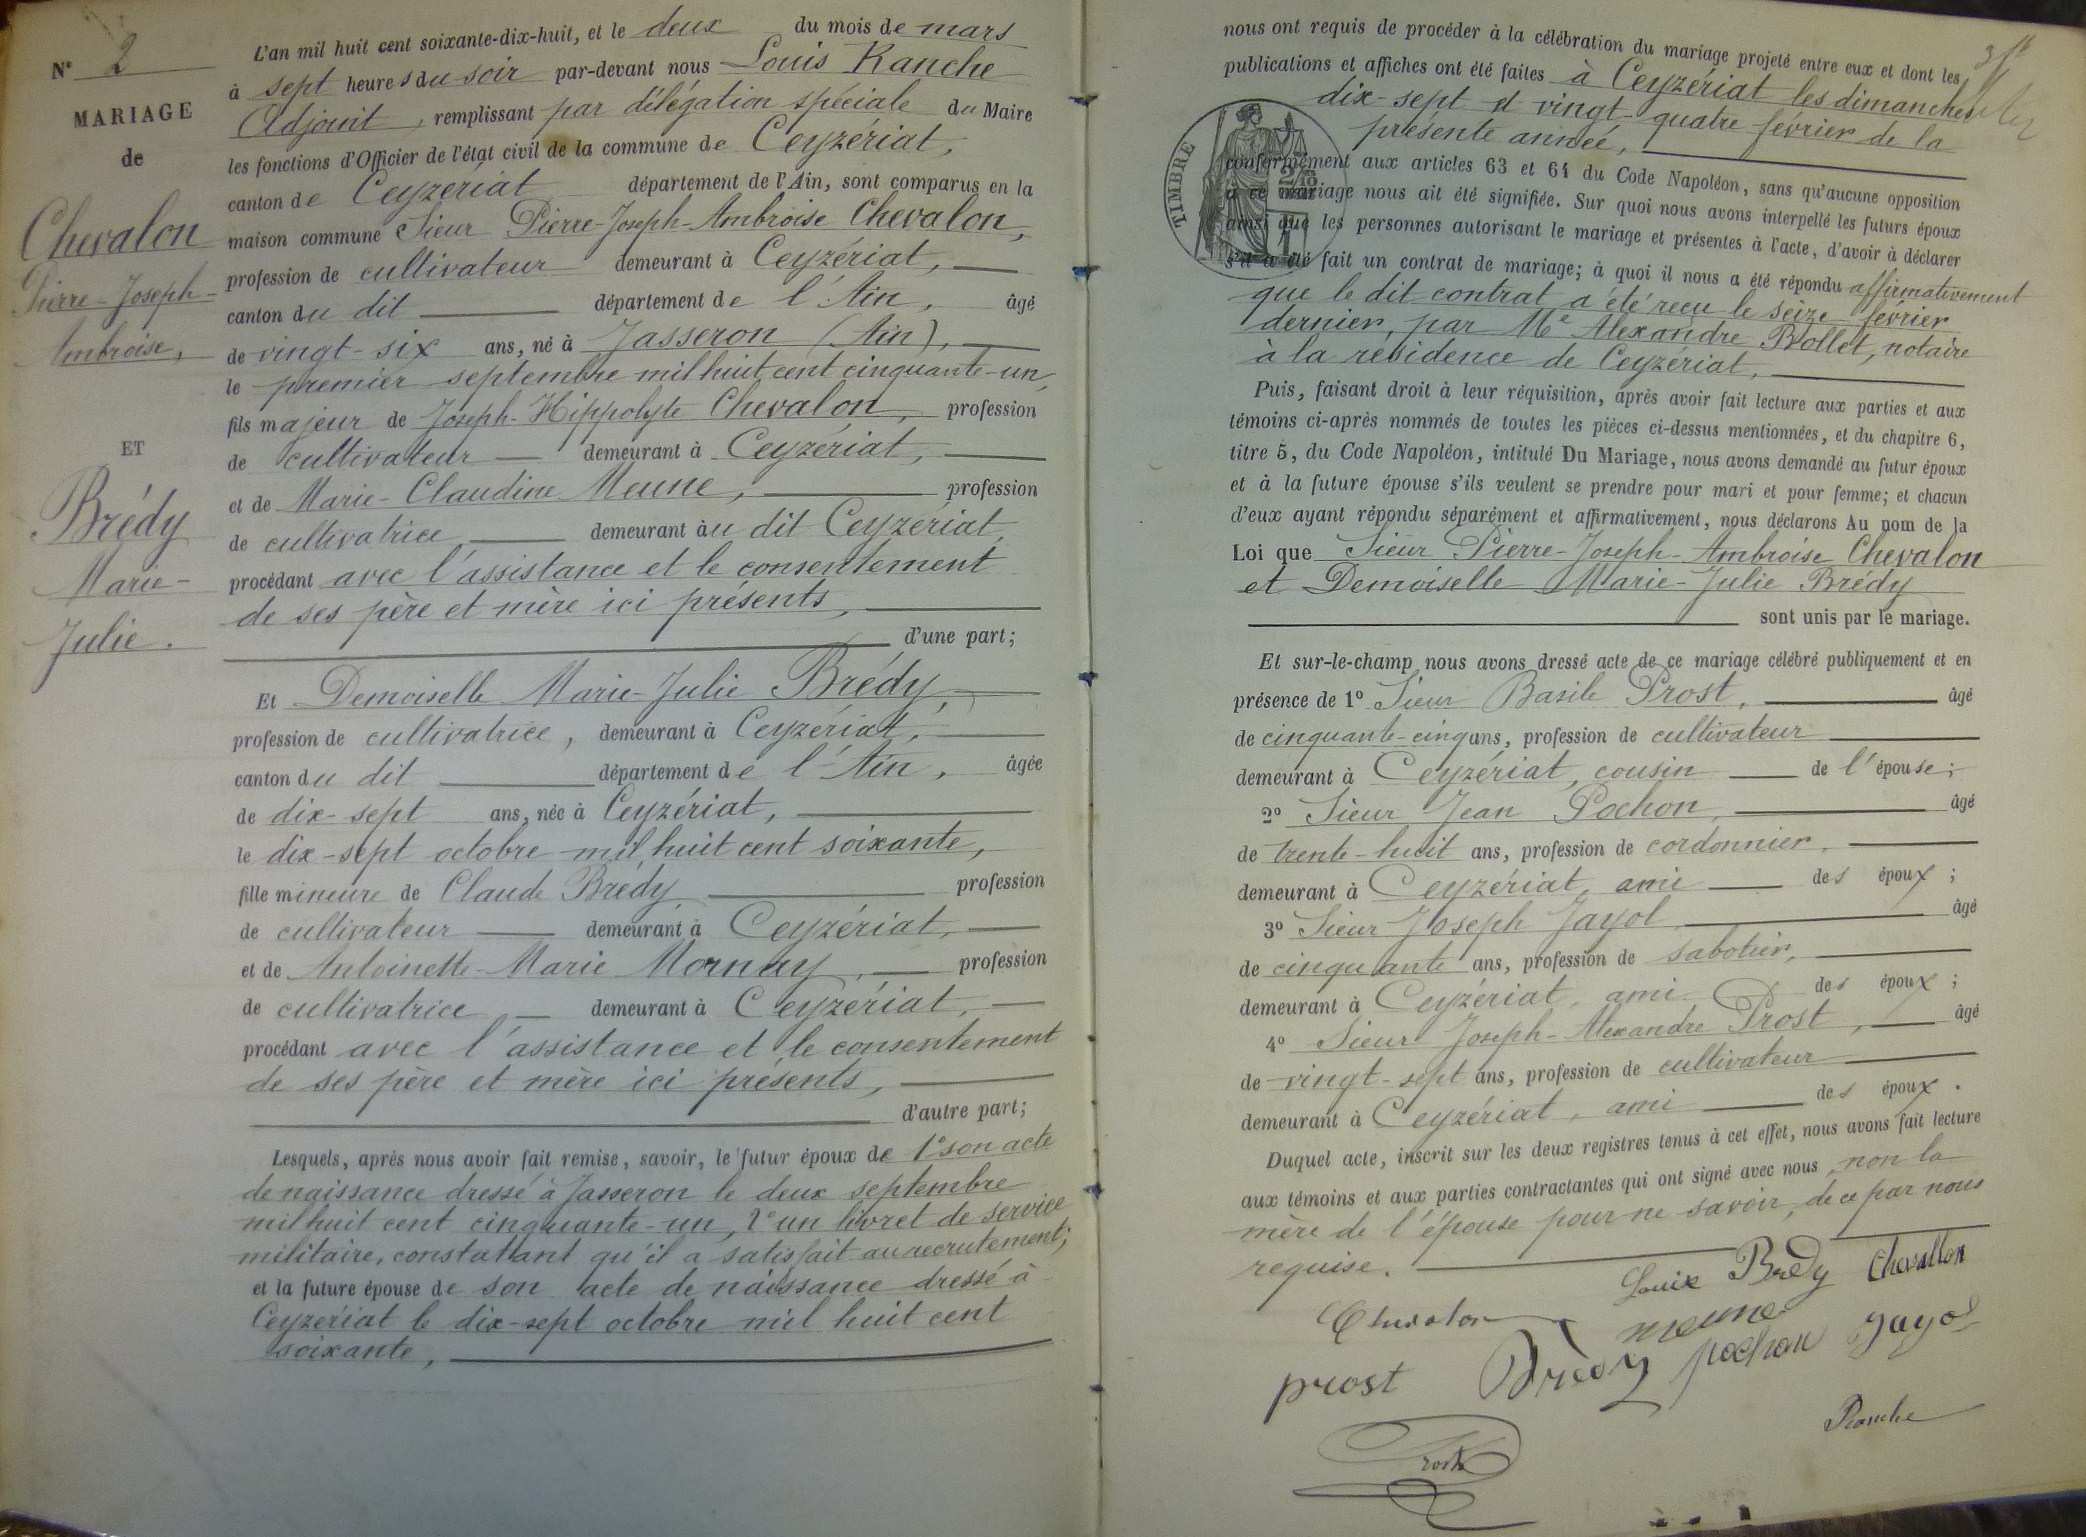 N° 2
MARIAGE
de
Chevalon
Pierre-Joseph-
Ambroise,
ET
Brédy
Marie-
Julie.
L'an mil huit cent soixante-dix-huit, et le deux du mois de mars
à sept heures du soir par-devant nous Louis Ranche
Adjoint, remplissant par délégation spéciale du Maire
les fonctions d'Officier de l'état civil de la commune de Ceyzériat,
canton de Ceyzériat département de l'Ain, sont comparus en la
maison commune Sieur Pierre-Joseph-Ambroise Chevalon,
profession de cultivateur demeurant à Ceyzériat,
canton du dit département de l'Ain, âgé
de vingt-six ans, né à Jasseron (Ain),
le premier septembre mil huit cent cinquante-un,
fils majeur de Joseph-Hippolyte Chevalon, profession
de cultivateur demeurant à Ceyzériat,
et de Marie-Claudine Meune, profession
de cultivatrice demeurant àu dit Ceyzériat,
procédant avec l'assistance et le consentement
de ses père et mère ici présents,
d'une part;
Et Demoiselle Marie-Julie Brédy,
profession de cultivatrice, demeurant à Ceyzériat,
canton du dit département de l'Ain, âgée
de dix-sept ans, née à Ceyzériat,
le dix-sept octobre mil huit cent soixante,
fille mineure de Claude Brédy, profession
de cultivateur demeurant à Ceyzériat,
et de Antoinette-Marie Mornay, profession
de cultivatrice demeurant à Ceyzériat,
procédant avec l'assistance et le consentement
de ses père et mère ici présents,
d'autre part;
Lesquels, après nous avoir fait remise, savoir, le futur époux de 1° son acte
de naissance dressé à Jasseron le deux septembre
mil huit cent cinquante-un, 2° un livret de service
militaire, constatant qu'il a satisfait au recrutement;
et la future épouse de son acte de naissance dressé à
Ceyzériat le dix-sept octobre mil huit cent
soixante,
nous ont requis de procéder à la célébration du mariage projeté entre eux et dont les
publications et affiches ont été faites à Ceyzériat les dimanches
dix-sept et vingt-quatre février de la
présente année,
TIMBRE
conformément aux articles 63 et 64 du Code Napoléon, sans qu'aucune opposition
à ce mariage nous ait été signifiée. Sur quoi nous avons interpellé les futurs époux
ainsi que les personnes autorisant le mariage et présentes à l'acte, d'avoir à déclarer
s'il a été fait un contrat de mariage; à quoi il nous a été répondu affirmativement
que le dit contrat a été reçu le seize février
dernier, par Me Alexandre Bollet, notaire
à la résidence de Ceyzériat,
Puis, faisant droit à leur réquisition, après avoir fait lecture aux parties et aux
témoins ci-après nommés de toutes les pièces ci-dessus mentionnées, et du chapitre 6,
titre 5, du Code Napoléon, intitulé Du Mariage, nous avons demandé au futur époux
et à la future épouse s'ils veulent se prendre pour mari et pour femme; et chacun
d'eux ayant répondu séparément et affirmativement, nous déclarons Au nom de la
Loi que Sieur Pierre-Joseph-Ambroise Chevalon
et Demoiselle Marie-Julie Brédy
sont unis par le mariage.
Et sur-le-champ nous avons dressé acte de ce mariage célébré publiquement et en
présence de 1° Sieur Basile Prost, âgé
de cinquante-cinq ans, profession de cultivateur
demeurant à Ceyzériat, cousin de l'épouse;
2° Sieur Jean Pochon, âgé
de trente-huit ans, profession de cordonnier,
demeurant à Ceyzériat, ami des époux;
3° Sieur Joseph Jayol âgé
de cinquante ans, profession de sabotier,
demeurant à Ceyzériat, ami des époux;
4° Sieur Joseph-Alexandre Prost, âgé
de vingt-sept ans, profession de cultivateur
demeurant à Ceyzériat, ami des époux.
Duquel acte, inscrit sur les deux registres tenus à cet effet, nous avons fait lecture
aux témoins et aux parties contractantes qui ont signé avec nous, non la
mère de l'épouse pour ne savoir, de ce par nous
requise.
Brédy Chevallon
Chevalon meune
prost Brédy pochon Jayol
Ranche
Prost